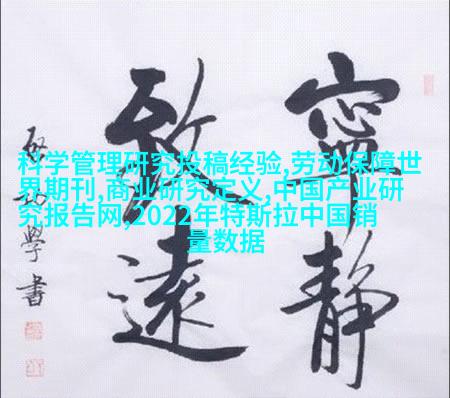 寧静
致遠
啟功學書
科学管理研究投稿经验,劳动保障世
界期刊,商业研究定义,中国产业研
究报告网,2022年特斯拉中国销
量数据